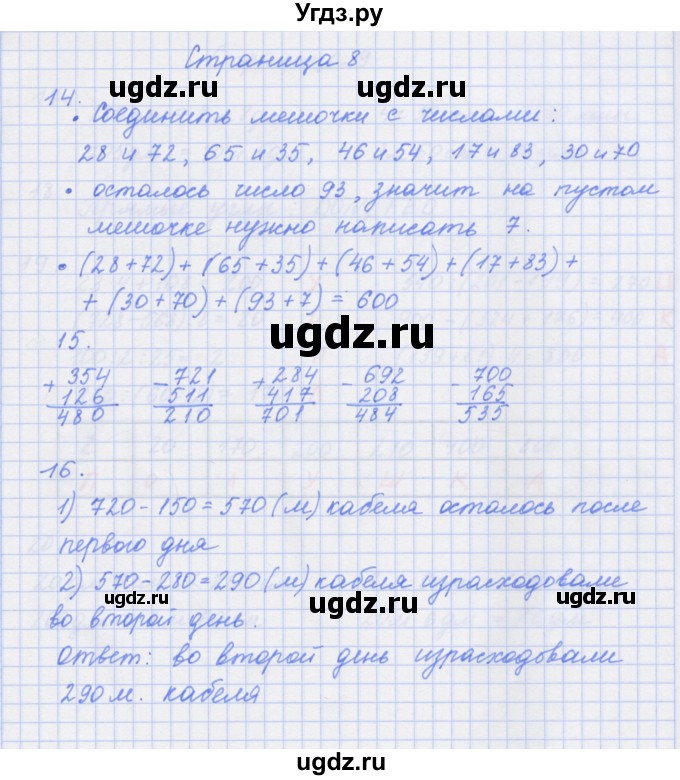 Угдз.ру
Страница 8
ugdz.ru ugdz.ru
14.
• Соединить мешочки с числами:
28 и 72, 65 и 35, 46 и 54, 17 и 83, 30 и 70
• осталось число 93, значит на пустом
мешочке нужно написать 7.
• (28+72) + (65+35) + (46+54) + (17+83) +
+ (30+70) + (93+7) = 600
ugdz.ru
15.
+354 -721 +284 -692 -700
126 511 417 208 165
480 210 701 484 535
ugdz.ru
16.
1) 720-150=570 (м) кабеля осталось после
первого дня
2) 570-280=290 (м) кабеля израсходовали
ugdz.ru ugdz.ru
во второй день.
Ответ: во второй день израсходовали
290 м. кабеля
ugdz.ru